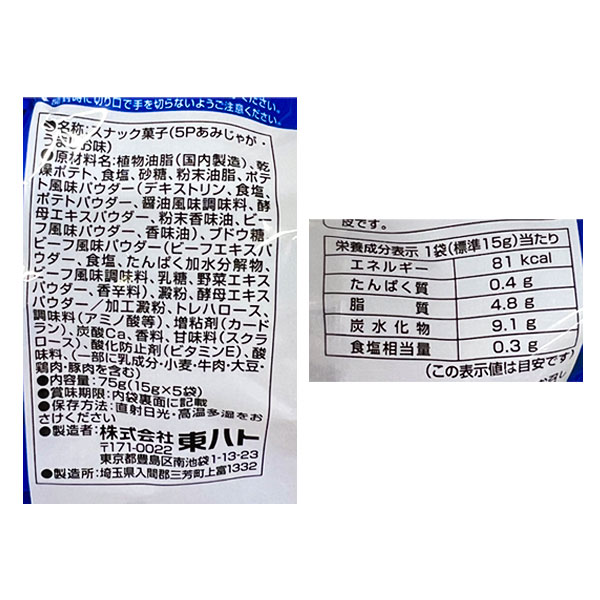 開封時に切り口で手を切らないようご注意ください。
●名称:スナック菓子(5Pあみじゃが・
うましお味)
●原材料名:植物油脂(国内製造)、乾
燥ポテト、食塩、砂糖、粉末油脂、ポテ
ト風味パウダー(デキストリン、食塩、
ポテトパウダー、醤油風味調味料、酵
母エキスパウダー、粉末香味油、ビー
フ風味パウダー、香味油)、ブドウ糖、
ビーフ風味パウダー(ビーフエキスパ
ウダー、食塩、たんぱく加水分解物、
ビーフ風味調味料、乳糖、野菜エキス
パウダー、香辛料)、澱粉、酵母エキス
パウダー/加工澱粉、トレハロース、
調味料(アミノ酸等)、増粘剤(カード
ラン)、炭酸Ca、香料、甘味料(スクラ
ロース)、酸化防止剤(ビタミンE)、酸
味料、(一部に乳成分・小麦・牛肉・大豆・
鶏肉・豚肉を含む)
●内容量:75g(15g×5袋)
●賞味期限:内袋裏面に記載
●保存方法:直射日光・高温多湿をお
さけください
●製造者:株式会社東ハト
〒171-0022
東京都豊島区南池袋1-13-23
●製造所:埼玉県入間郡三芳町上富1332
皮です。
栄養成分表示 1袋(標準15g)当たり
エネルギー 81 kcal
たんぱく質 0.4 g
脂質 4.8 g
炭水化物 9.1 g
食塩相当量 0.3 g
(この表示値は目安です)